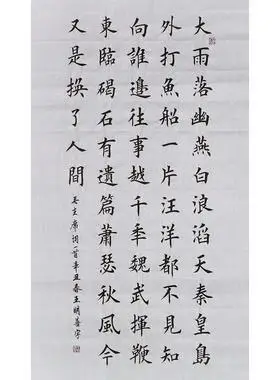 大雨落幽燕白浪滔天秦皇島
外打魚船一片汪洋都不見知
向誰邊往事越千秊魏武揮鞭
東臨碣石有遺篇蕭瑟秋風今
又是換了人間
毛主席詞一首辛丑春王明善字